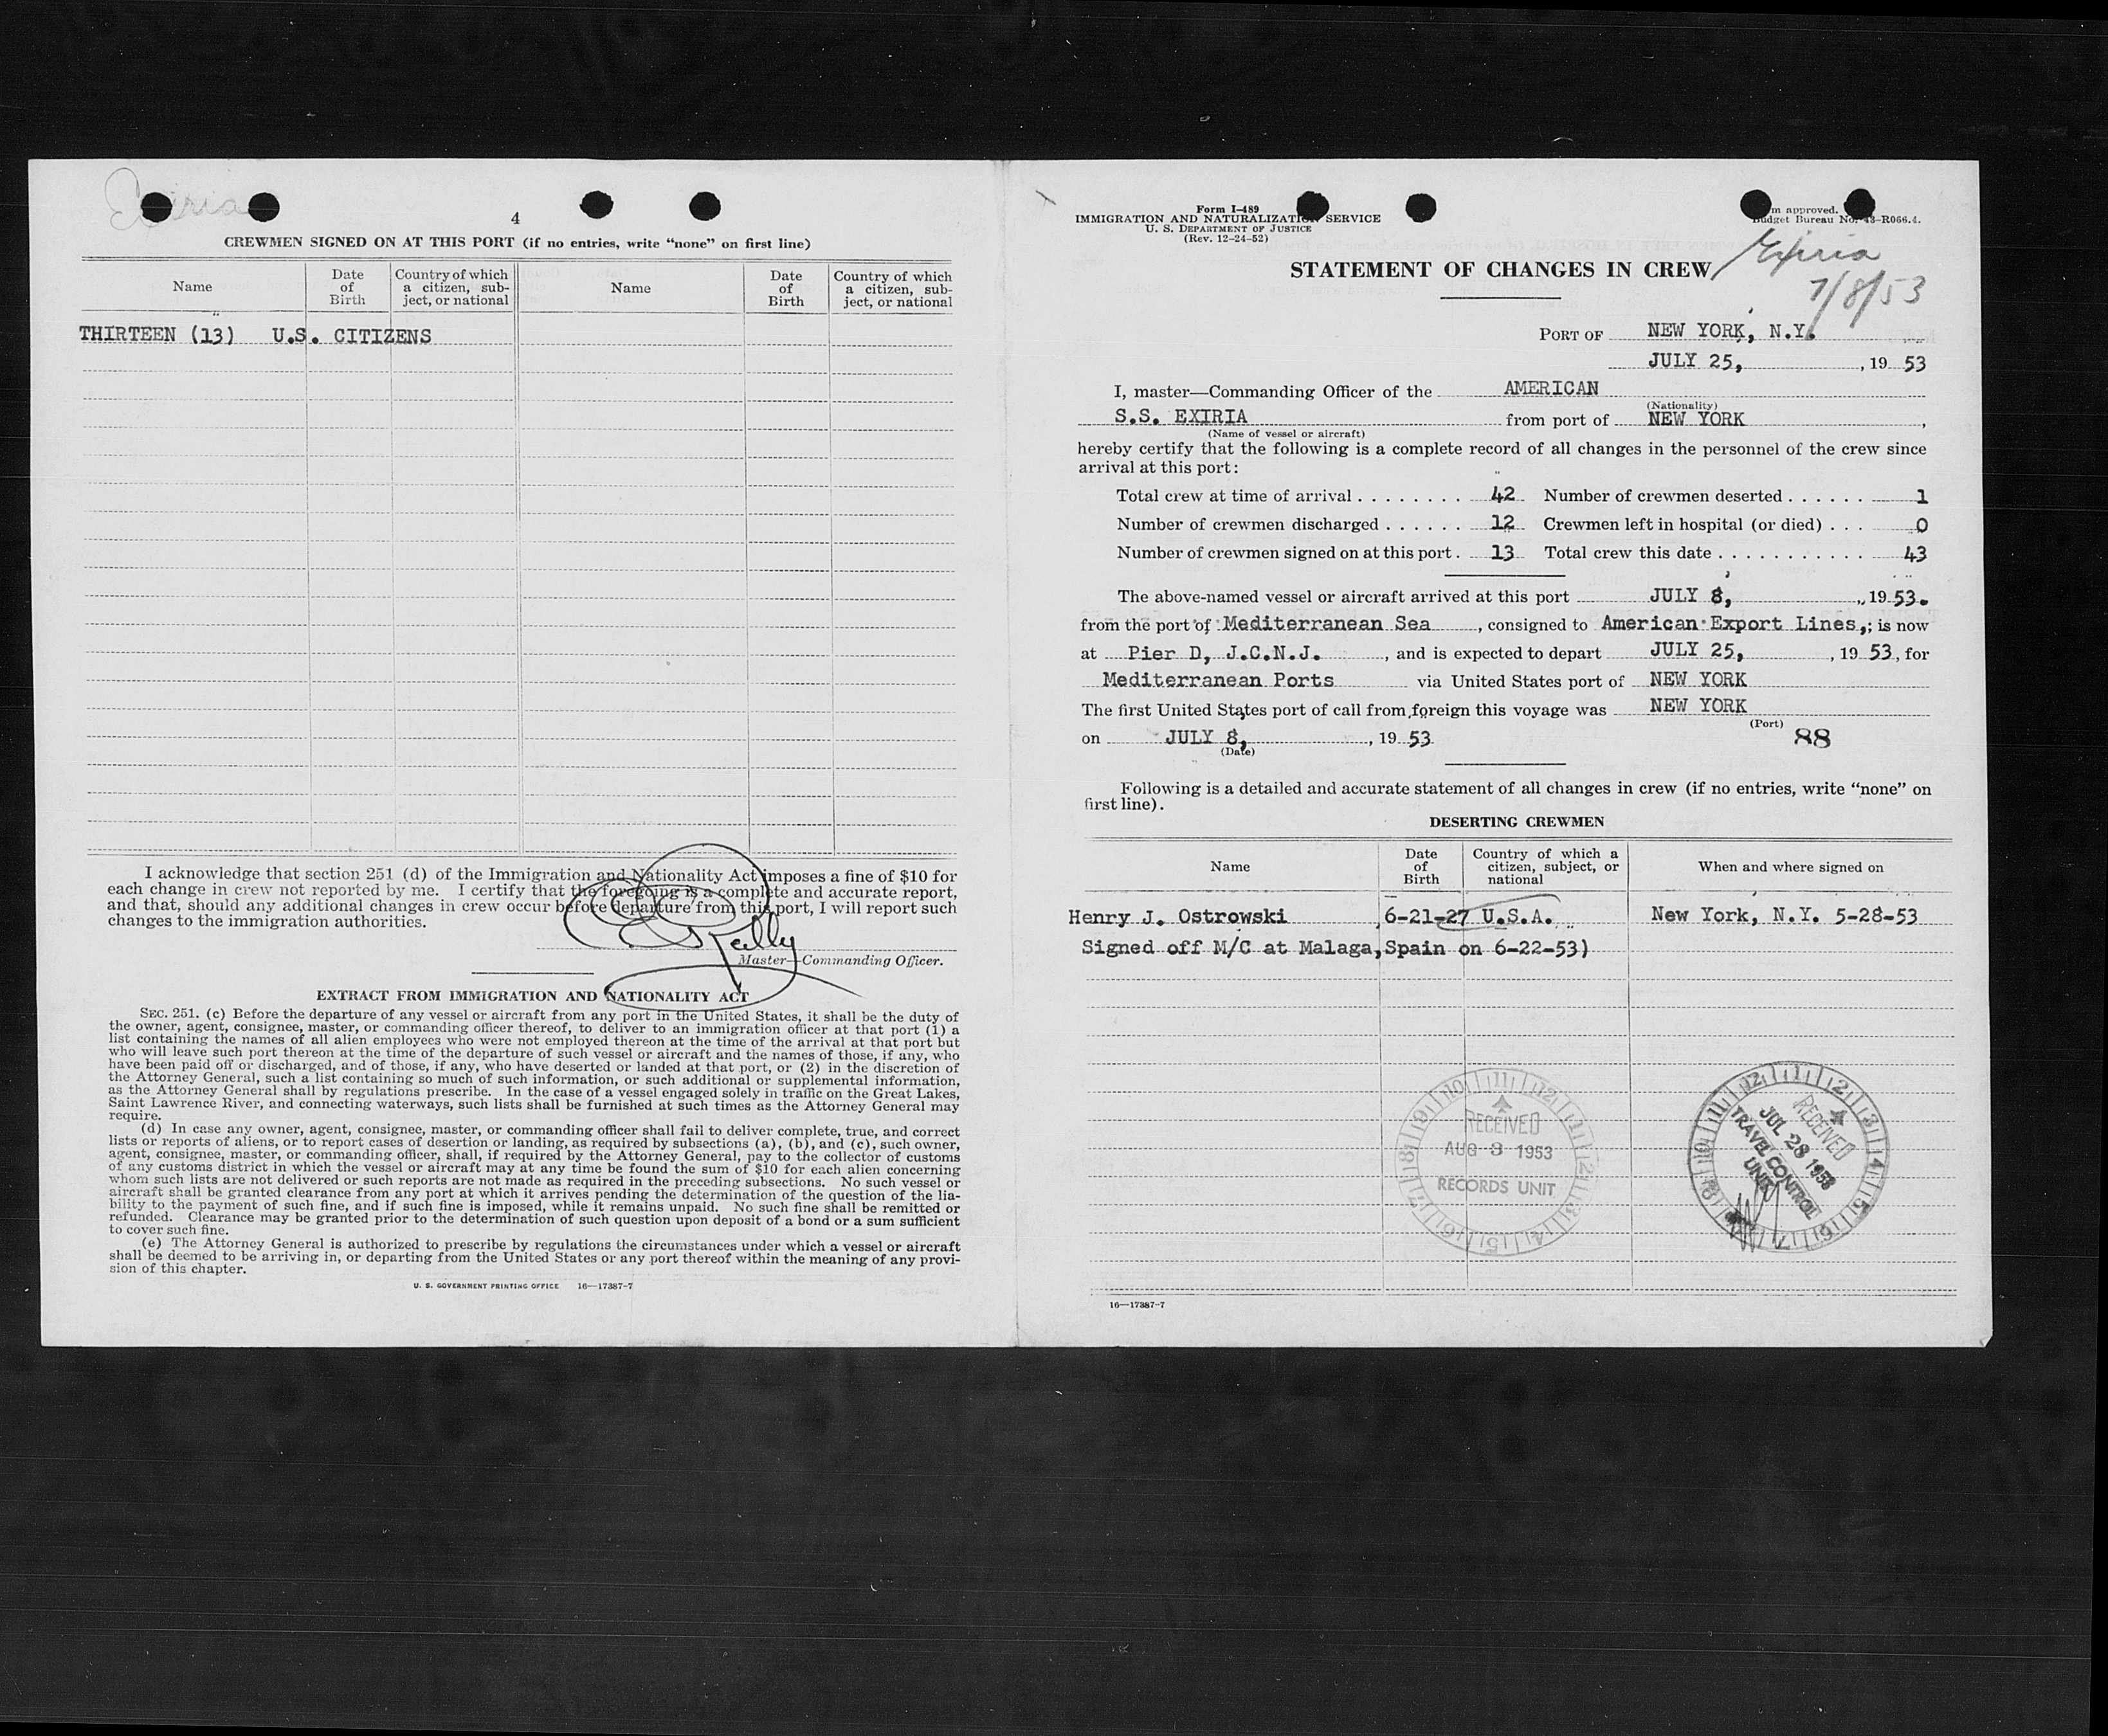 Exiria
4
CREWMEN SIGNED ON AT THIS PORT (if no entries, write “none” on first line)
Name Date of Birth Country of which a citizen, subject, or national Name Date of Birth Country of which a citizen, subject, or national
THIRTEEN (13) U.S. CITIZENS
I acknowledge that section 251 (d) of the Immigration and Nationality Act imposes a fine of $10 for
each change in crew not reported by me. I certify that the foregoing is a complete and accurate report,
and that, should any additional changes in crew occur before departure from this port, I will report such
changes to the immigration authorities.
Master—Commanding Officer.
EXTRACT FROM IMMIGRATION AND NATIONALITY ACT
SEC. 251. (c) Before the departure of any vessel or aircraft from any port in the United States, it shall be the duty of
the owner, agent, consignee, master, or commanding officer thereof, to deliver to an immigration officer at that port (1) a
list containing the names of all alien employees who were not employed thereon at the time of the arrival at that port but
who will leave such port thereon at the time of the departure of such vessel or aircraft and the names of those, if any, who
have been paid off or discharged, and of those, if any, who have deserted or landed at that port, or (2) in the discretion of
the Attorney General, such a list containing so much of such information, or such additional or supplemental information,
as the Attorney General shall by regulations prescribe. In the case of a vessel engaged solely in traffic on the Great Lakes,
Saint Lawrence River, and connecting waterways, such lists shall be furnished at such times as the Attorney General may
require.
(d) In case any owner, agent, consignee, master, or commanding officer shall fail to deliver complete, true, and correct
lists or reports of aliens, or to report cases of desertion or landing, as required by subsections (a), (b), and (c), such owner,
agent, consignee, master, or commanding officer, shall, if required by the Attorney General, pay to the collector of customs
of any customs district in which the vessel or aircraft may at any time be found the sum of $10 for each alien concerning
whom such lists are not delivered or such reports are not made as required in the preceding subsections. No such vessel or
aircraft shall be granted clearance from any port at which it arrives pending the determination of the question of the lia-
bility to the payment of such fine, and if such fine is imposed, while it remains unpaid. No such fine shall be remitted or
refunded. Clearance may be granted prior to the determination of such question upon deposit of a bond or a sum sufficient
to cover such fine.
(e) The Attorney General is authorized to prescribe by regulations the circumstances under which a vessel or aircraft
shall be deemed to be arriving in, or departing from the United States or any port thereof within the meaning of any provi-
sion of this chapter.
U. S. GOVERNMENT PRINTING OFFICE 16—17387-7
Form I-489
IMMIGRATION AND NATURALIZATION SERVICE
U. S. DEPARTMENT OF JUSTICE
(Rev. 12-24-52)
approved.
Budget Bureau No. 43-R066.4.
Exiria
7/8/53
STATEMENT OF CHANGES IN CREW
PORT OF NEW YORK, N.Y.
JULY 25, , 19 53
I, master—Commanding Officer of the AMERICAN
(Nationality)
S.S. EXIRIA from port of NEW YORK ,
(Name of vessel or aircraft)
hereby certify that the following is a complete record of all changes in the personnel of the crew since
arrival at this port:
Total crew at time of arrival . . . . . . . . 42 Number of crewmen deserted . . . . . . 1
Number of crewmen discharged . . . . . . 12 Crewmen left in hospital (or died) . . . 0
Number of crewmen signed on at this port . 13 Total crew this date . . . . . . . . . . . 43
The above-named vessel or aircraft arrived at this port JULY 8, , 19 53.
from the port of Mediterranean Sea , consigned to American Export Lines,; is now
at Pier D, J.C.N.J. , and is expected to depart JULY 25, , 19 53, for
Mediterranean Ports via United States port of NEW YORK
The first United States port of call from foreign this voyage was NEW YORK
(Port)
on JULY 8, , 19 53 88
(Date)
Following is a detailed and accurate statement of all changes in crew (if no entries, write “none” on
first line).
DESERTING CREWMEN
Name Date of Birth Country of which a citizen, subject, or national When and where signed on
Henry J. Ostrowski 6-21-27 U.S.A. New York, N.Y. 5-28-53
Signed off M/C at Malaga, Spain on 6-22-53)
RECEIVED
AUG 3 1953
RECORDS UNIT
RECEIVED
JUL 28 1953
TRAVEL CONTROL
UNIT
16—17387-7